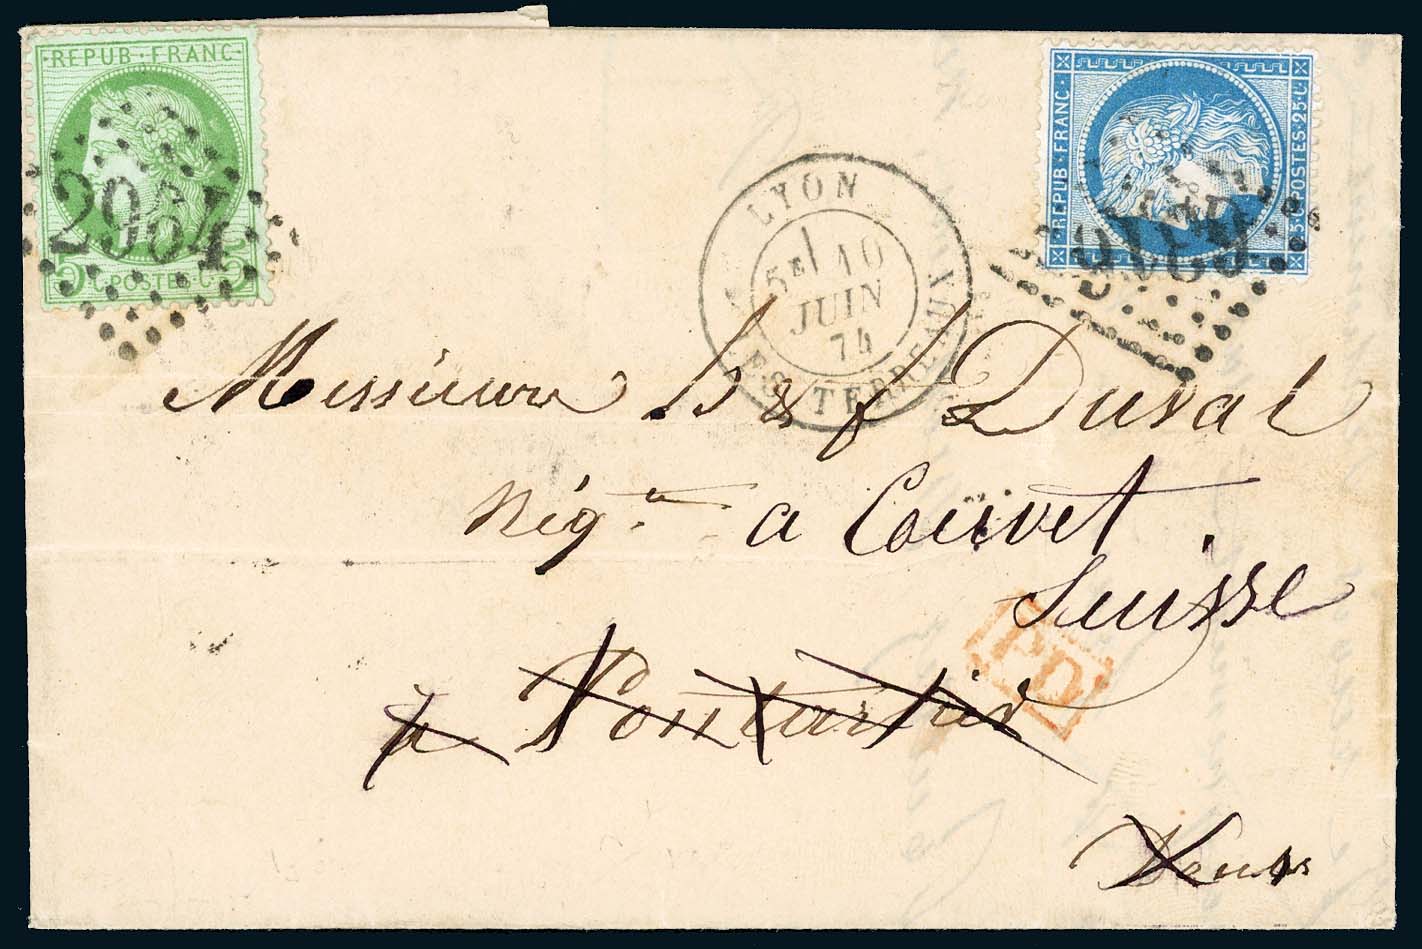 REPUB·FRANC
2964
5 C·POSTES·5 C
REPUB·FRANC·
25·C·POSTES·25·C
LYON
5E/ 10
JUIN
74
LES TERREAUX
Messieurs h & f Duval
Nég.ts a Couvet.
Suisse
PD
à Pontarlier
Doubs